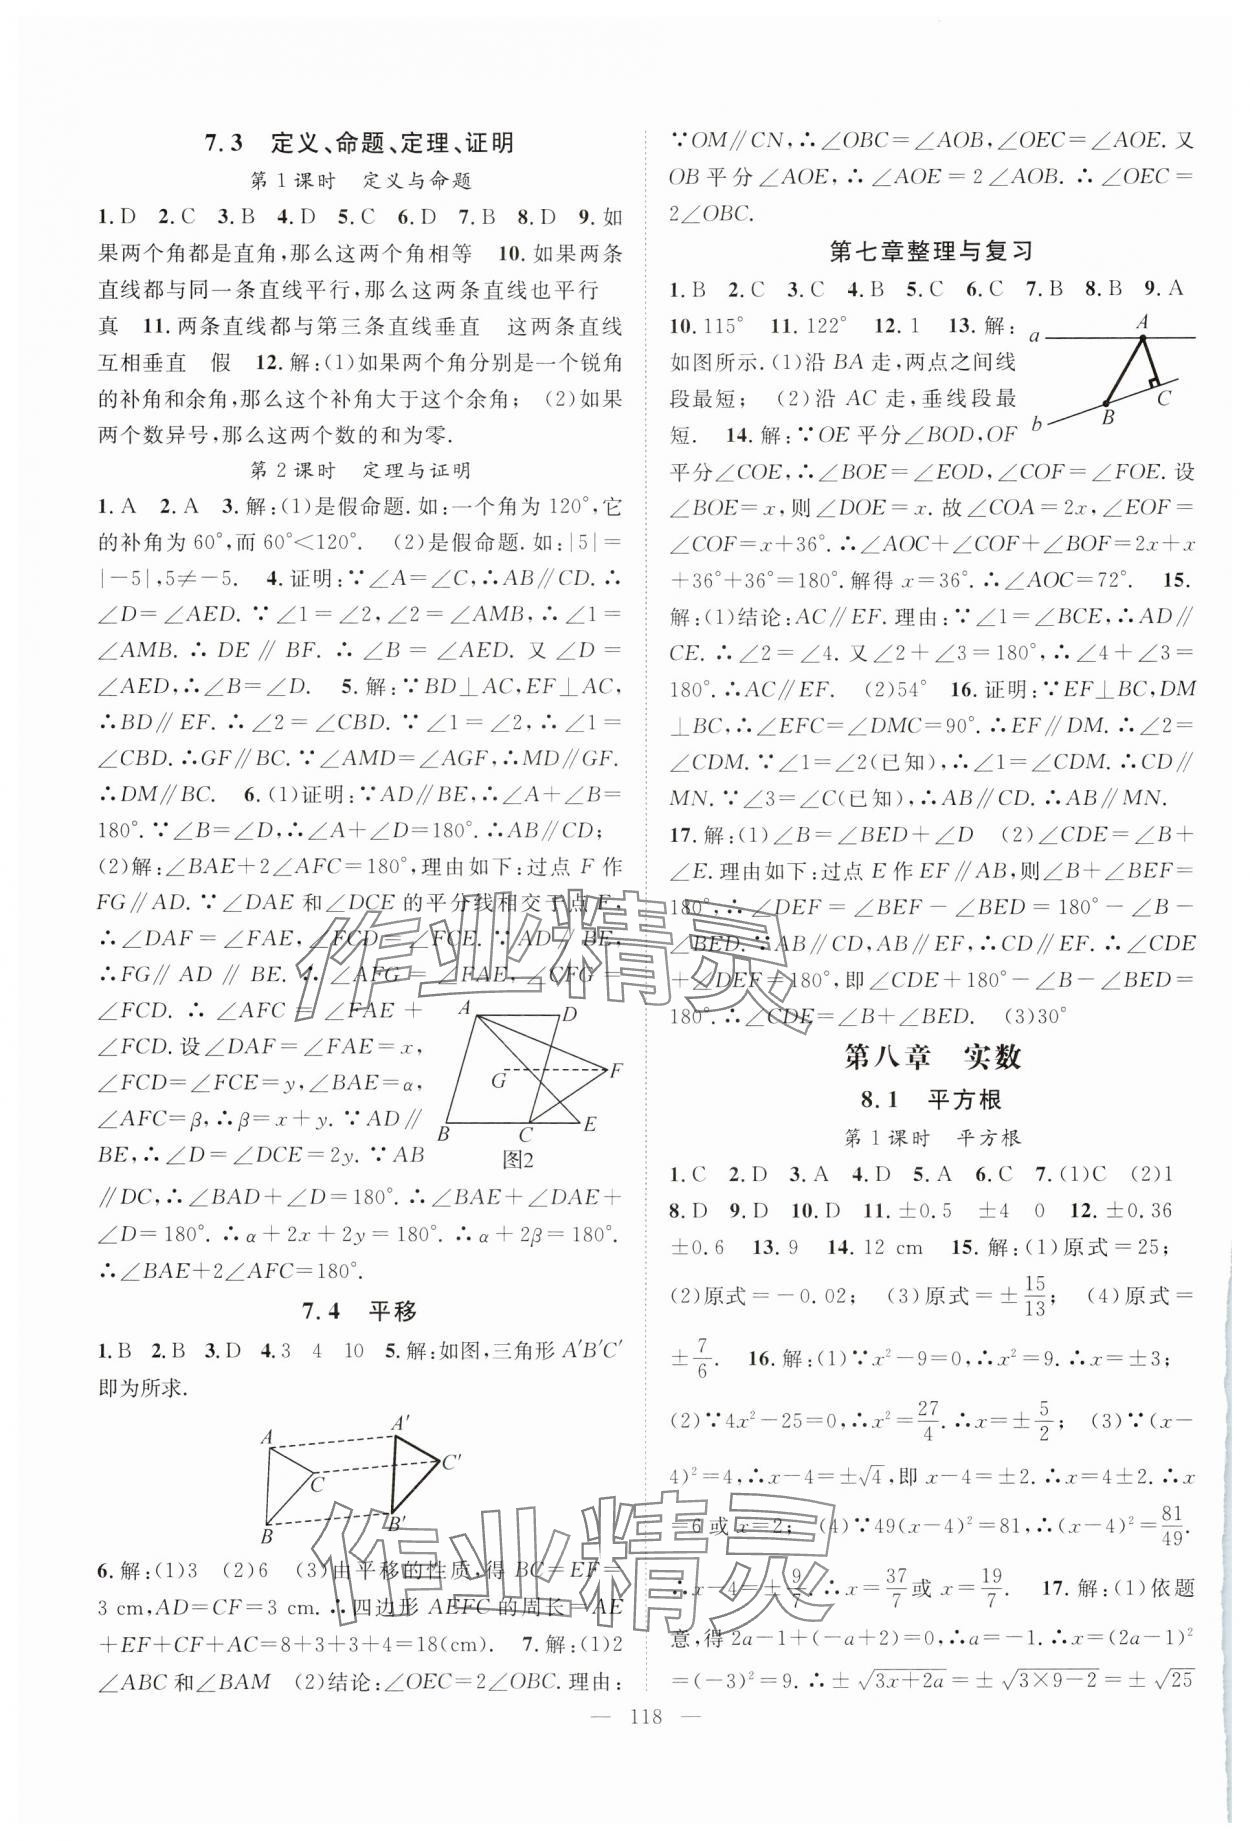 7.3 定义、命题、定理、证明
第1课时 定义与命题
1.D 2.C 3.B 4.D 5.C 6.D 7.B 8.D 9.如
果两个角都是直角,那么这两个角相等 10.如果两条
直线都与同一条直线平行,那么这两条直线也平行
真 11.两条直线都与第三条直线垂直 这两条直线
互相垂直 假 12.解:(1)如果两个角分别是一个锐角
的补角和余角,那么这个补角大于这个余角; (2)如果
两个数异号,那么这两个数的和为零.
第2课时 定理与证明
1.A 2.A 3.解:(1)是假命题.如:一个角为120°,它
的补角为60°,而60°<120°. (2)是假命题.如:|5|=
|-5|,5≠-5. 4.证明:∵∠A=∠C,∴AB∥CD.∴
∠D=∠AED.∵∠1=∠2,∠2=∠AMB,∴∠1=
∠AMB.∴DE∥BF.∴∠B=∠AED.又∠D=
∠AED,∴∠B=∠D. 5.解:∵BD⊥AC,EF⊥AC,
∴BD∥EF.∴∠2=∠CBD.∵∠1=∠2,∴∠1=
∠CBD.∴GF∥BC.∵∠AMD=∠AGF,∴MD∥GF.
∴DM∥BC. 6.(1)证明:∵AD∥BE,∴∠A+∠B=
180°.∵∠B=∠D,∴∠A+∠D=180°.∴AB∥CD;
(2)解:∠BAE+2∠AFC=180°,理由如下:过点F作
FG∥AD.∵∠DAE和∠DCE的平分线相交于点F,
∴∠DAF=∠FAE,∠FCD=∠FCE.∵AD∥BE,
∴FG∥AD∥BE.∴∠AFG=∠FAE,∠CFG=
∠FCD.∴∠AFC=∠FAE+
∠FCD.设∠DAF=∠FAE=x,
∠FCD=∠FCE=y,∠BAE=α,
∠AFC=β,∴β=x+y.∵AD∥
BE,∴∠D=∠DCE=2y.∵AB
A D
G F
B C E
图2
∥DC,∴∠BAD+∠D=180°.∴∠BAE+∠DAE+
∠D=180°.∴α+2x+2y=180°.∴α+2β=180°.
∴∠BAE+2∠AFC=180°.
7.4 平移
1.B 2.B 3.D 4.3 4 10 5.解:如图,三角形A′B′C′
即为所求.
A A′
C C′
B B′
6.解:(1)3 (2)6 (3)由平移的性质,得BC=EF=
3 cm,AD=CF=3 cm.∴四边形AEFC的周长=AE
+EF+CF+AC=8+3+3+4=18(cm). 7.解:(1)2
∠ABC和∠BAM (2)结论:∠OEC=2∠OBC.理由:
∵OM∥CN,∴∠OBC=∠AOB,∠OEC=∠AOE.又
OB平分∠AOE,∴∠AOE=2∠AOB.∴∠OEC=
2∠OBC.
第七章整理与复习
1.B 2.C 3.C 4.B 5.C 6.C 7.B 8.B 9.A
10.115° 11.122° 12.1 13.解:
如图所示.(1)沿BA走,两点之间线
段最短; (2)沿AC走,垂线段最
短. 14.解:∵OE平分∠BOD,OF
a A
b B C
平分∠COE,∴∠BOE=∠EOD,∠COF=∠FOE.设
∠BOE=x,则∠DOE=x.故∠COA=2x,∠EOF=
∠COF=x+36°.∴∠AOC+∠COF+∠BOF=2x+x
+36°+36°=180°.解得x=36°.∴∠AOC=72°. 15.
解:(1)结论:AC∥EF.理由:∵∠1=∠BCE,∴AD∥
CE.∴∠2=∠4.又∠2+∠3=180°,∴∠4+∠3=
180°.∴AC∥EF. (2)54° 16.证明:∵EF⊥BC,DM
⊥BC,∴∠EFC=∠DMC=90°.∴EF∥DM.∴∠2=
∠CDM.∵∠1=∠2(已知),∴∠1=∠CDM.∴CD∥
MN.∵∠3=∠C(已知),∴AB∥CD.∴AB∥MN.
17.解:(1)∠B=∠BED+∠D (2)∠CDE=∠B+
∠E.理由如下:过点E作EF∥AB,则∠B+∠BEF=
180°,∴∠DEF=∠BEF-∠BED=180°-∠B-
∠BED.∵AB∥CD,AB∥EF,∴CD∥EF.∴∠CDE
+∠DEF=180°,即∠CDE+180°-∠B-∠BED=
180°.∴∠CDE=∠B+∠BED. (3)30°
第八章 实数
8.1 平方根
第1课时 平方根
1.C 2.D 3.A 4.D 5.A 6.C 7.(1)C (2)1
8.D 9.D 10.D 11.±0.5 ±4 0 12.±0.36
±0.6 13.9 14.12 cm 15.解:(1)原式=25;
(2)原式=-0.02; (3)原式=±15/13; (4)原式=
±7/6. 16.解:(1)∵x²-9=0,∴x²=9.∴x=±3;
(2)∵4x²-25=0,∴x²=27/4.∴x=±5/2; (3)∵(x-
4)²=4,∴x-4=±√4,即x-4=±2.∴x=4±2.∴x
=6或x=2; (4)∵49(x-4)²=81,∴(x-4)²=81/49.
∴x-4=±9/7.∴x=37/7或x=19/7. 17.解:(1)依题
意,得2a-1+(-a+2)=0,∴a=-1.∴x=(2a-1)²
=(-3)²=9.∴±√(3x+2a)=±√(3×9-2)=±√25
— 118 —
作业精灵
作业精灵